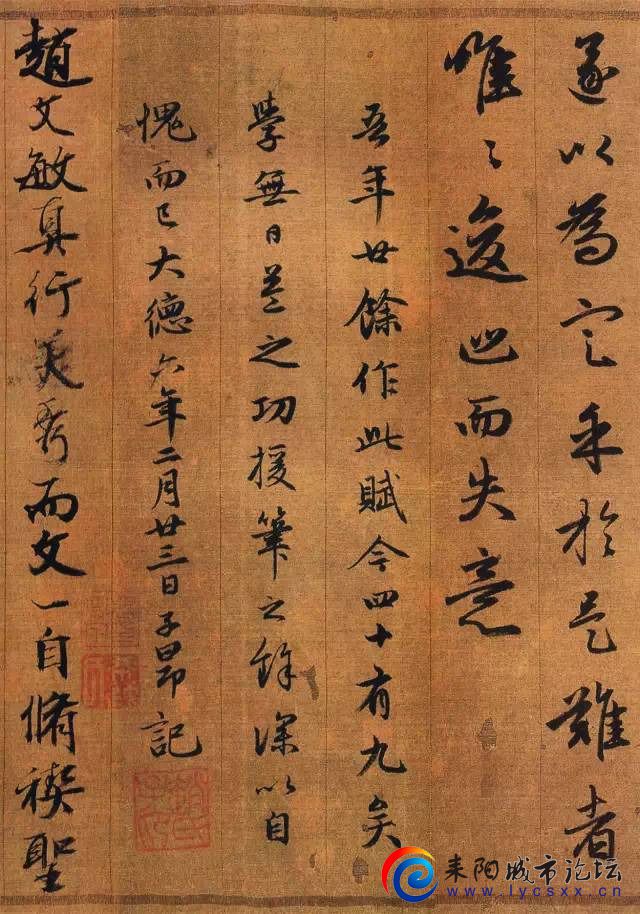 遂以為定乎於是難者
唯々逡巡而失意
吾年廿餘作此賦今四十有九矣
學無日益之功援筆之餘深以自
愧而已大德六年二月廿三日子昂記
趙文敏真行美秀而文一自脩禊聖
耒阳城市论坛
www.lycsxx.cn